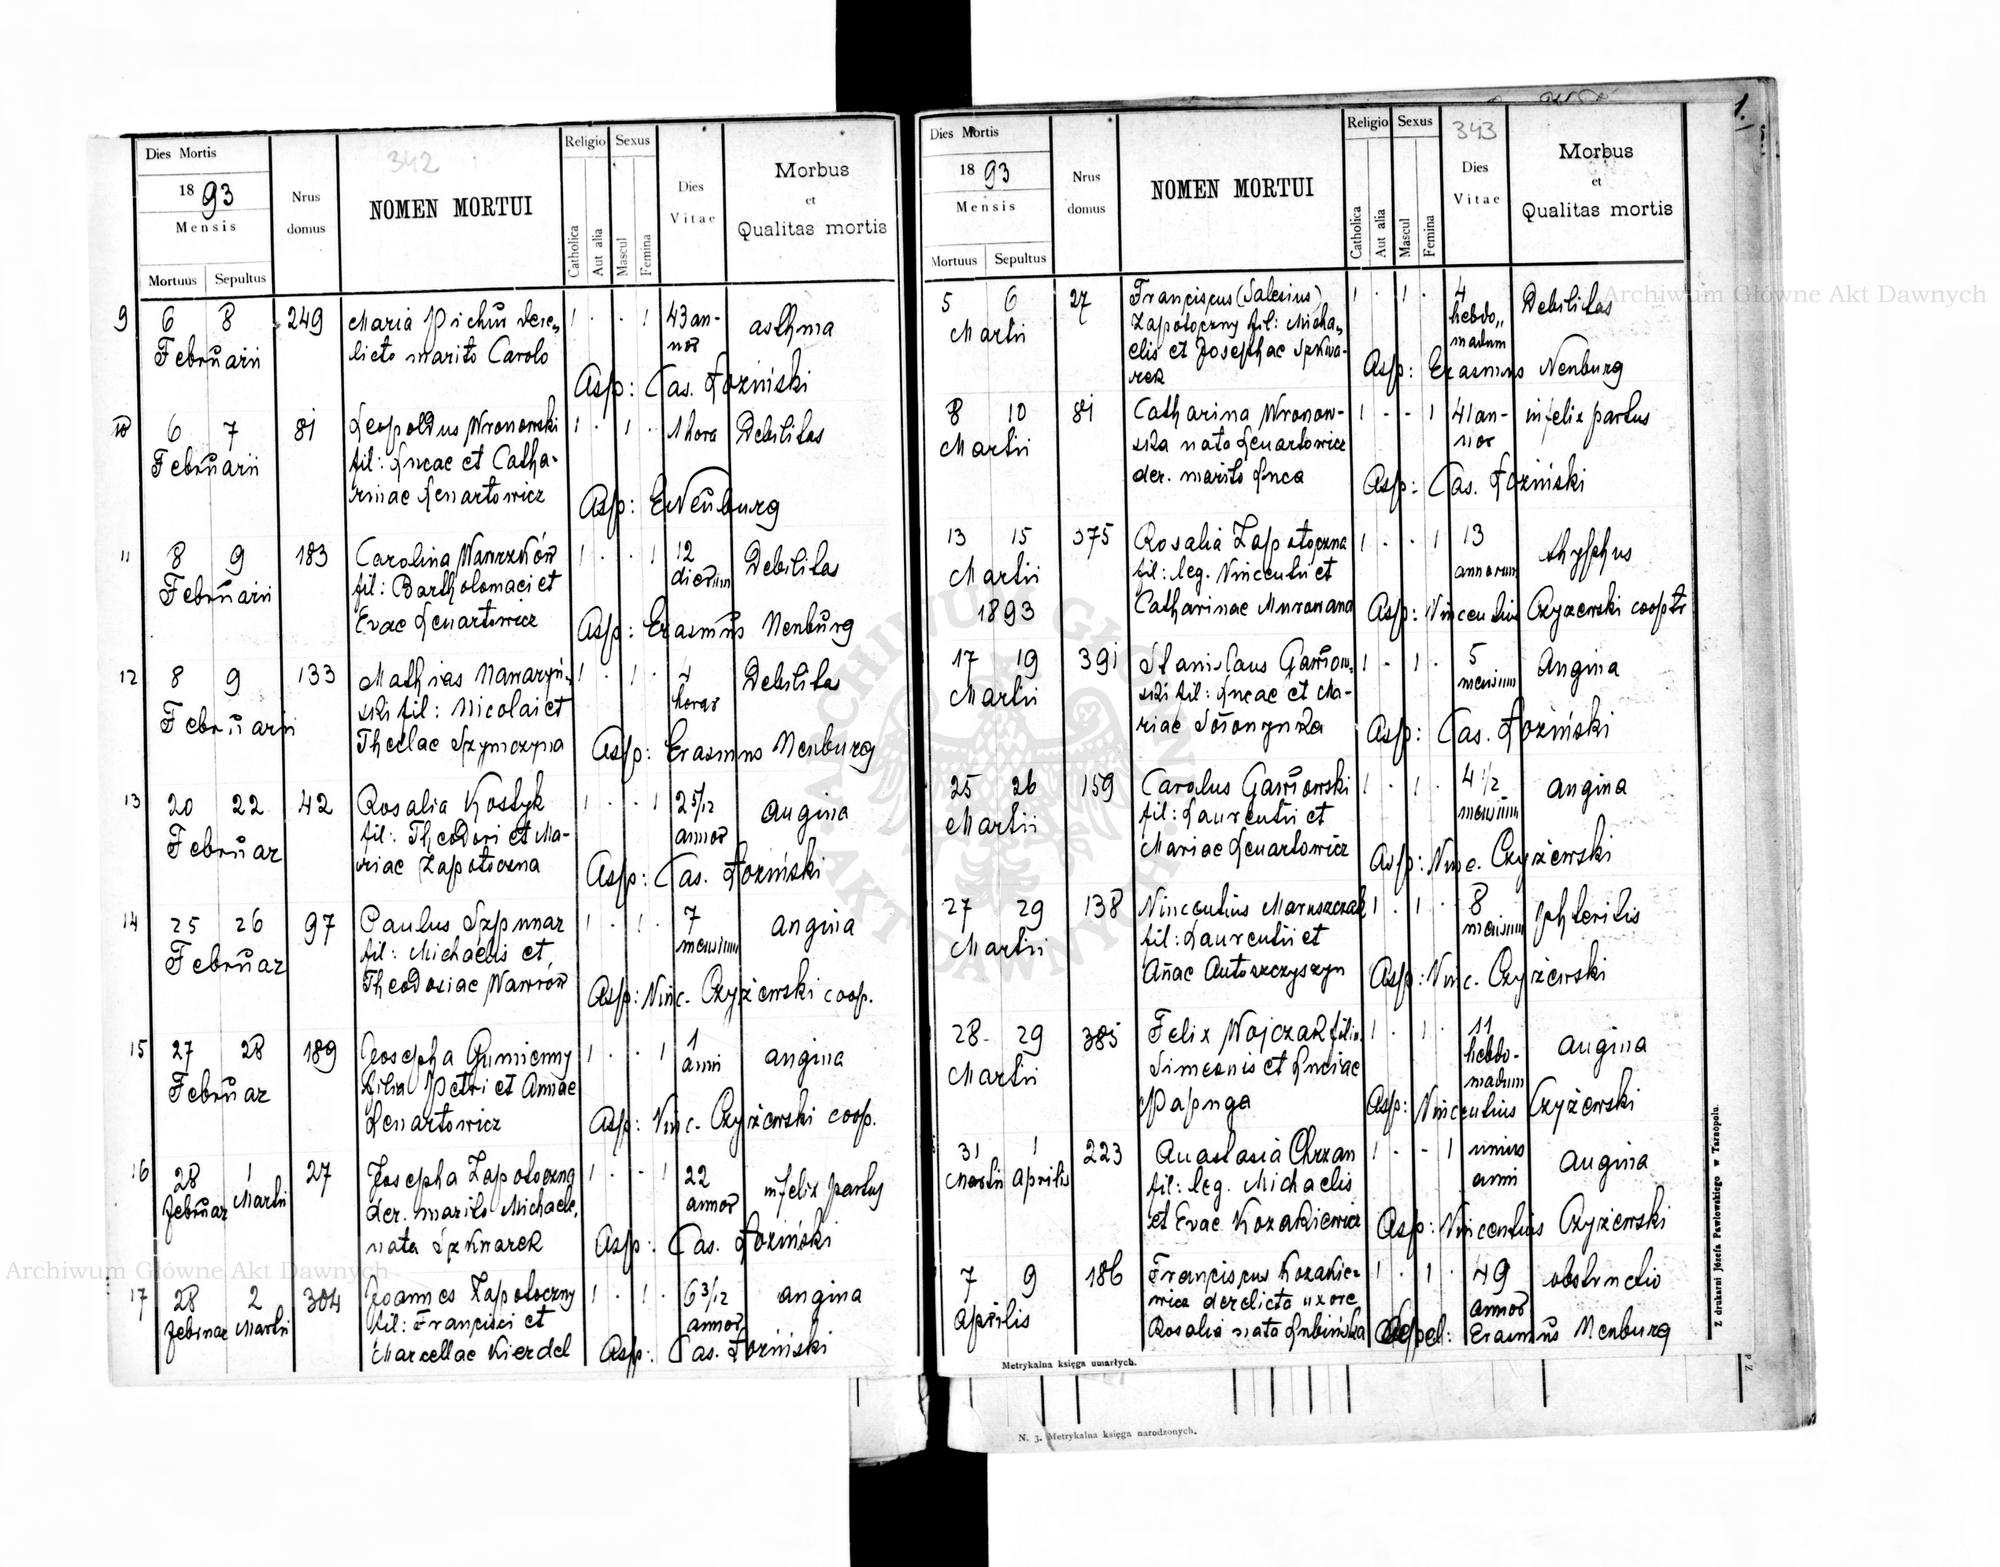 342
Dies Mortis
1893
Mensis
Mortuus Sepultus
Nrus
domus
NOMEN MORTUI
Religio
Catholica
Aut alia
Sexus
Mascul
Femina
Dies
Vitae
Morbus
et
Qualitas mortis
9 6 8 249 Maria dere= 1 . . 1 43 an- asthma
Februarii licto marito Carolo nor
Asp: Cas. Łoziński
10 6 7 81 Leopoldus Wronowski 1 . 1 . 1 hora Debilitas
Februarii fil: Lucae et Catha-
rinae Lenartowicz
Asp: E Neuburg
11 8 9 183 Carolina Wawrzków 1 . . 1 12 Debilitas
Februarii fil: Bartholomaei et dierum
Evae Lenartowicz
Asp: Erasmus Neuburg
12 8 9 133 Mathias 1 . 1 . 4 Debilitas
Februarii ski fil: Nicolai et horas
Theclae Szymczyna
Asp: Erasmus Neuburg
13 20 22 42 Rosalia Kostyk 1 . . 1 2 5/12 angina
Februar fil: Theodori et Ma- annor
riae Zapotoczna
Asp: Cas. Łoziński
14 25 26 97 Paulus Szpunar 1 . 1 . 7 angina
Februar fil: Michaelis et mensium
Theodosiae Wawrów
Asp: Vinc. Czyżewski coop.
15 27 28 189 Josepha Gumienny 1 . . 1 1 angina
Februar filia Petri et Annae anni
Lenartowicz
Asp: Vinc. Czyżewski coop.
16 28 1 27 Josepha Zapotoczna 1 . . 1 22 infelix partus
Februar Martii der. marito Michaele, annor
nata Szkwarek
Asp: Cas. Łoziński
17 28 2 304 Joannes Zapotoczny 1 . 1 . 6 3/12 angina
Februar Martii fil: Francisci et annor
Marcellae Kierdel
Asp: Cas. Łoziński
1.
343
Dies Mortis
1893
Mensis
Mortuus Sepultus
Nrus
domus
NOMEN MORTUI
Religio
Catholica
Aut alia
Sexus
Mascul
Femina
Dies
Vitae
Morbus
et
Qualitas mortis
5 6 27 Franciscus (Salesius) 1 . 1 . 4 Debilitas
Martii Zapotoczny fil: Micha= hebdo„
elis et Josephae Szkwa- madum
rek
Asp: Erasmus Neuburg
8 10 81 Catharina Wronow- 1 . - 1 41 an- infelix partus
Martii ska nata Lenartowicz nor
der. marito Luca
Asp: Cas. Łoziński
13 15 375 Rosalia Zapotoczna 1 . . 1 13 thyphus
Martii fil: leg. Vincentii et annorum
1893 Catharinae Murowana
Asp: Vincentius Czyżewski cooptr
17 19 391 Stanislaus Gawrow= 1 . 1 . 5 Angina
Martii ski fil: Lucae et Ma- mensium
riae
Asp: Cas. Łoziński
25 26 159 Carolus Gawroński 1 . 1 . 4 1/2 angina
Martii fil: Laurentii et mensium
Mariae Lenartowicz
Asp: Vinc. Czyżewski
27 29 138 Vincentius Maruszczak 1 . 1 . 8
Martii fil: Laurentii et mensium
Anae Antoszczyszyn
Asp: Vinc. Czyżewski
28 29 385 Felix Wojczak filiu 1 . 1 . 11 angina
Martii Simeonis et Luciae hebdo-
Papuga madum
Asp: Vincentius Czyżewski
31 1 223 Anastasia Chrzan 1 . - 1 unius angina
Martii Aprilis fil: leg. Michaelis anni
et Evae Kozakiewicz
Asp: Vincentius Czyżewski
7 9 186 Franciscus Kozakie= 1 . 1 . 49 obstructio
Aprilis wicz derelicta uxore annor
Rosalia nata Lubińska
Erasmus Neuburg
Metrykalna księga umarłych.
Z drukarni Józefa Pawlowskiego w Tarnopolu.
N. 3. Metrykalna księga narodzonych.
Archiwum Główne Akt Dawnych
Archiwum Główne Akt Dawnych
ARCHIWUM GŁÓWNE AKT DAWNYCH